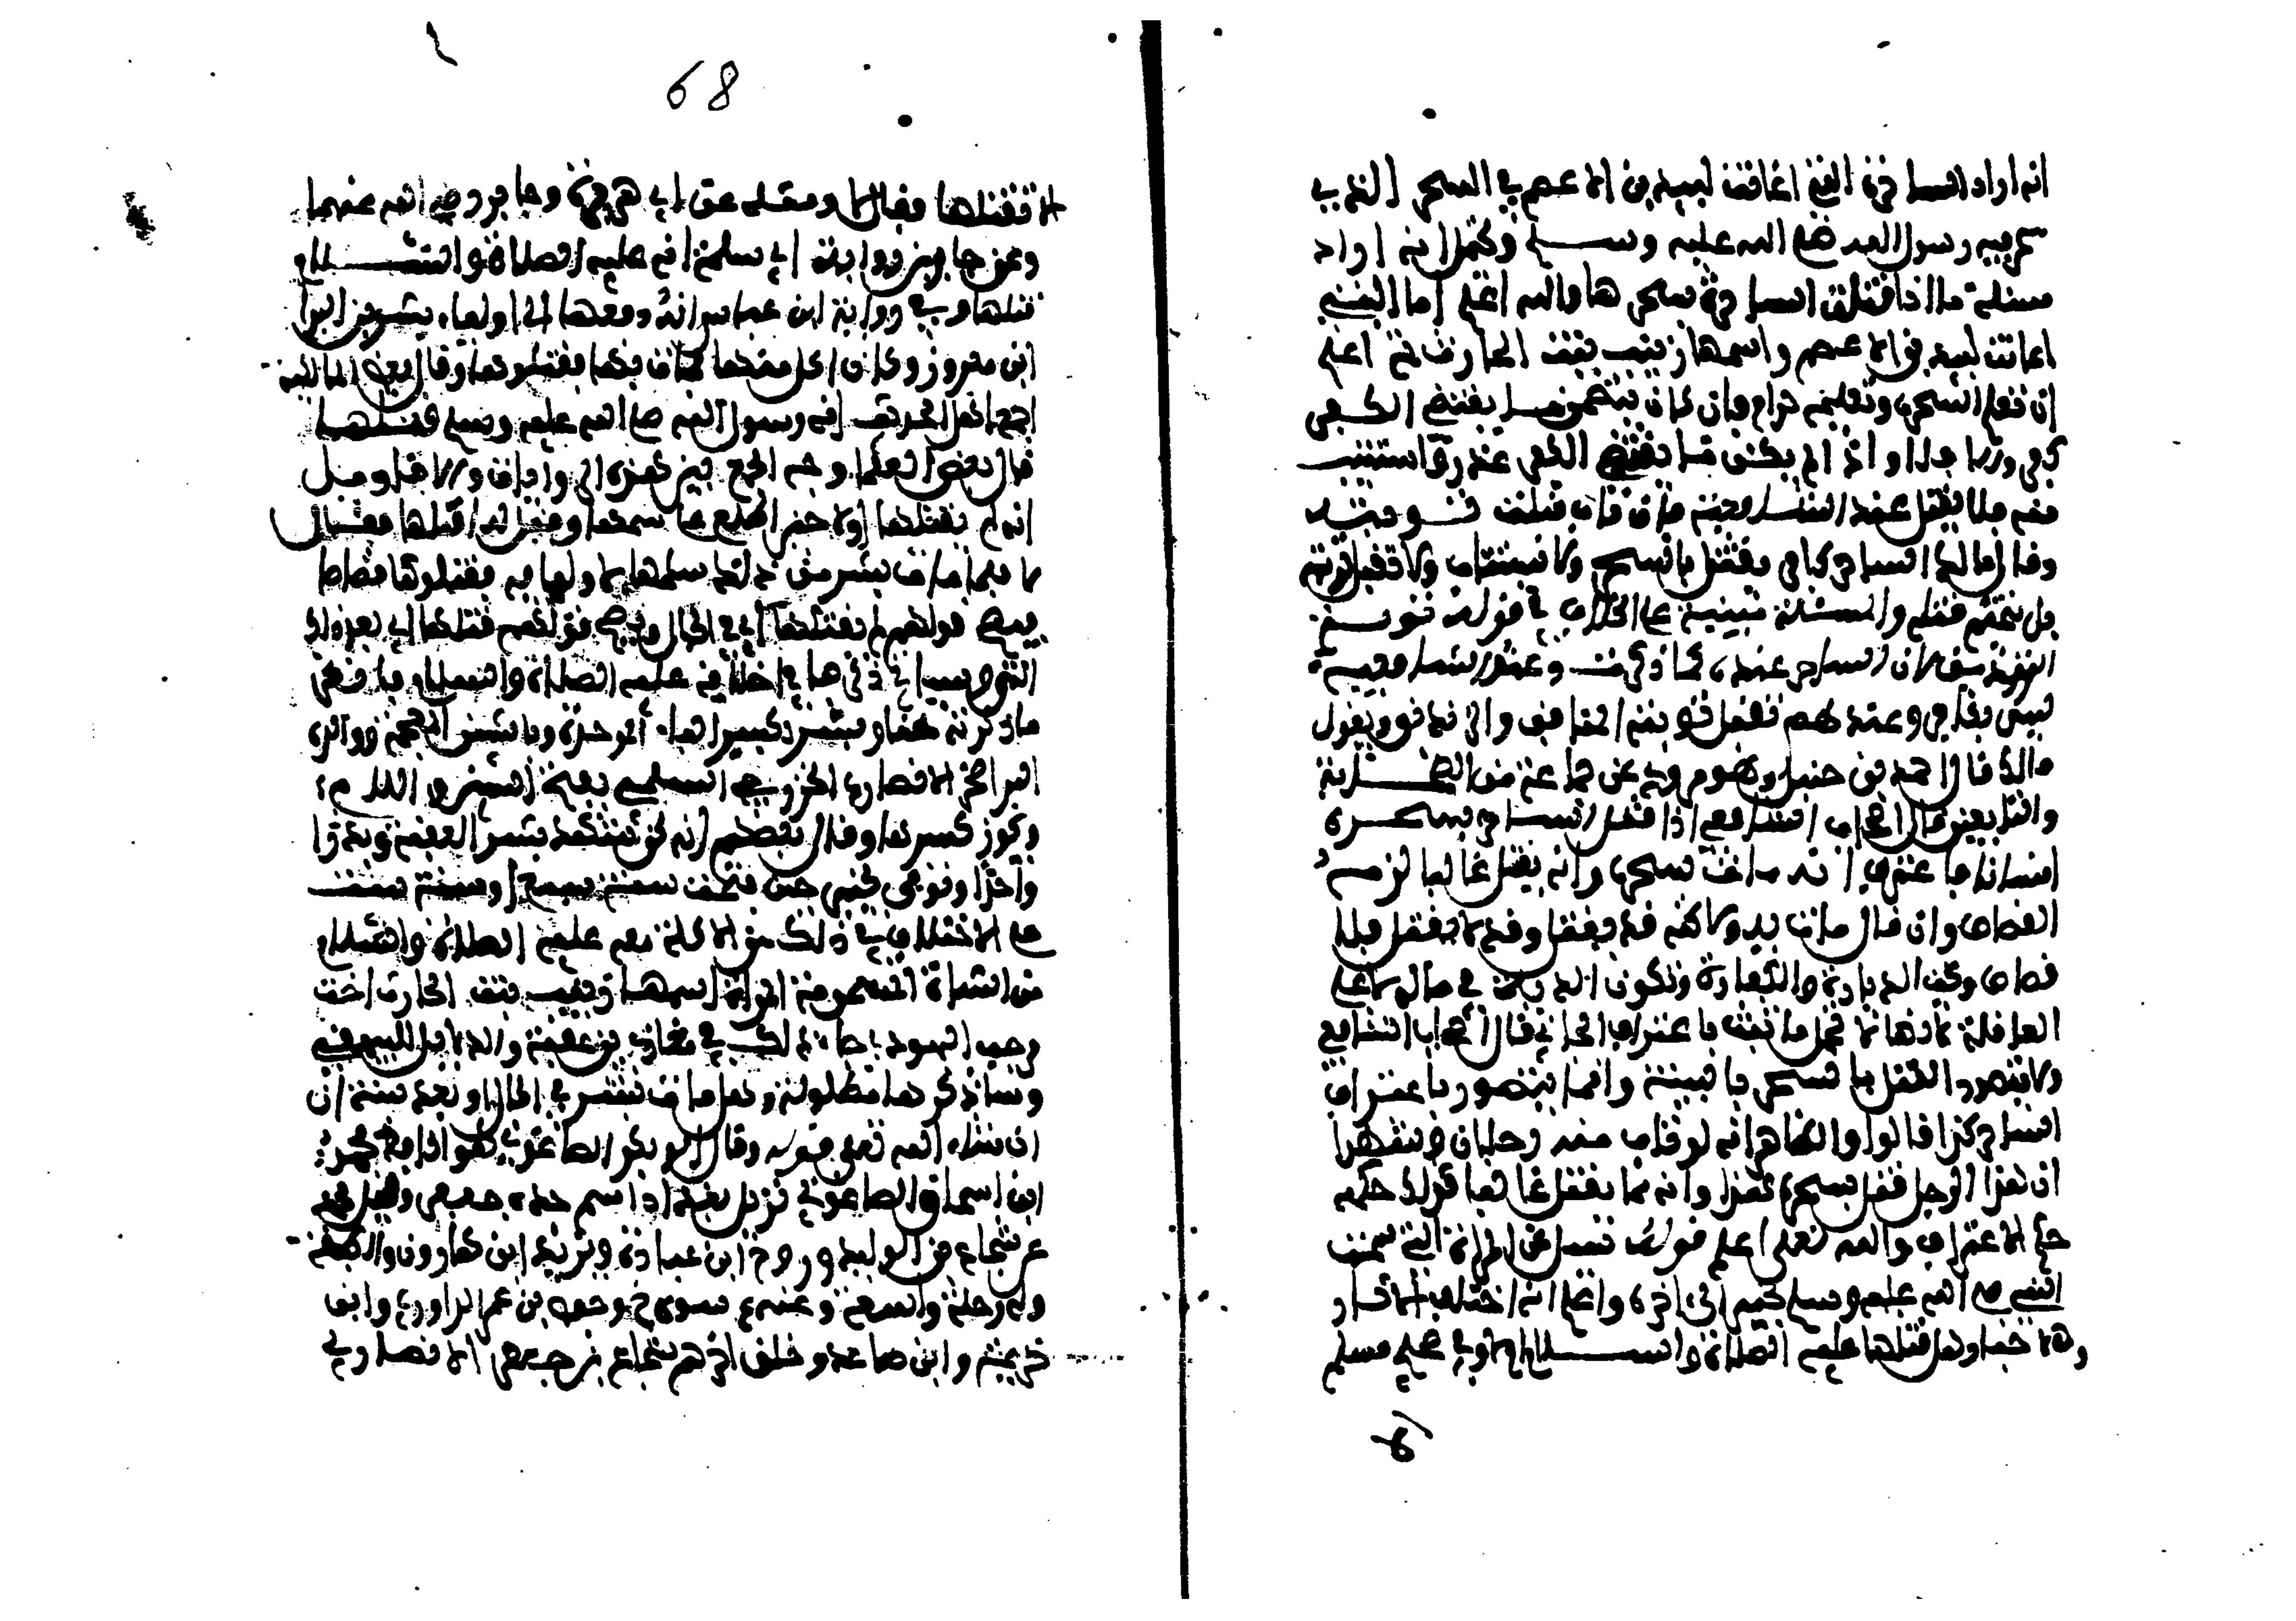 انه اراد الساحرة التي اعانت لبيد بن الاعصم في السحر الذي
سحر به رسول الله صلى الله عليه وسلم ويحتمل انه اراد
مسئلة ما اذا قتلت الساحرة بسحرها والله اعلم اما التي
اعانت لبيد بن الاعصم واسمها زينب بنت الحارث ثم اعلم
ان فعل السحر وتعليمه حرام فان كان يتضمن ما يقتضي الكفر
كفر والا فلا واذا لم يكن فيه ما يقتضي الكفر عزر واستتيب
منه فلا يقتل عند الشافعية فان تاب قبلت توبته
وقال مالك الساحر كافر يقتل بالسحر ولا يستتاب ولا تقبل توبته
بل يتحتم قتله والمسئلة مبنية على الخلاف في قبول توبة
الزنديق لان الساحر عنده كما ذكرت وعند الشافعية
ليس بكافر وعندهم تقبل توبة المنافق والزنديق وبقول
مالك قال احمد بن حنبل وهو مروي عن جماعة من الصحابة
والتابعين قال اصحاب الشافعي اذا قتل الساحر بسحره
انسانا فاعترف انه مات بسحره وانه يقتل غالبا لزمه
القصاص وان قال مات به ولاكنه قد يقتل وقد لا يقتل فلا
قصاص وتجب الدية والكفارة وتكون الدية في ماله لا على
العاقلة لانها لا تحمل ما ثبت باعتراف الجاني قال اصحاب الشافعي
ولا يتصور القتل بالسحر بالبينة وانما يتصور باعتراف
الساحر كذا قالوا والظاهر انه لو تاب منه رجلان وشهدا
ان هذا الرجل قتل بسحره هذا وانه مما يقتل غالبا فكذلك حكمه
حكم الاعتراف والله تعالى اعلم قوله نسل عن المراة التي سمت
النبي صلى الله عليه وسلم بخيبر الى اخره واعلم انه اختلف الاثار
والاخبار هل قتلها عليه الصلاة والسلام ام لا وفي صحيح مسلم
68
الا تقتلها فقال لا ومثله عن ابي هريرة وجابر رضي الله عنهما
وعن جابر من رواية ابي سلمة انه عليه الصلاة والسلام
قتلها وفي رواية ابن عباس انه دفعها الى اولياء بشر بن البرا
ابن معرور وكان اكل منها فمات بها فقتلوها وقال بعض المالكية
اجمع اهل الحديث ان رسول الله صلى الله عليه وسلم قتلها
قال بعض العلما وجه الجمع بين هذه الروايات والاقاويل
انه لم يقتلها اولا حين اطلع على سمها وقيل له اقتلها فقال
لا فلما مات بشر من ذلك سلمها لاوليائه فقتلوها قصاصا
فيصح قولهم لم يقتلها اي في الحال ويصح قولهم قتلها اي بعد ذلك
انتهى وسياتي ذكرها في اخلاقه عليه الصلاة والسلام باكثر
ما ذكرته هنا وبشر بكسر الباء الموحدة وبالشين المعجمة ووالده
البرا هو الانصاري الخزرجي السلمي بفتح السين واللام
ويجوز كسرها وقال بعضهم انه لحن شهد بشر العقبة وبدرا
واحدا وتوفي بخيبر حين فتحت سنة سبع او سنة ست
على الاختلاف في ذلك من الاكلة معه عليه الصلاة والسلام
من الشاة المسمومة المراة اسمها زينب بنت الحارث اخت
مرحب اليهودي جاء ذلك في مغازي بن عقبة والدلايل للبيهقي
وساذكرها مطولة وهل مات بشر في الحال او بعد سنة ان
ان شاء الله تعلى قوله وقال ابو بكر الصاغاني هو ابو بكر محمد
ابن اسحاق الصاغاني نزيل بغداد اسم جده جعفر وقيل محمد
عن شجاع بن الوليد وروح ابن عبادة ويزيد ابن هارون والطبقة
وله رحلة واسعة وعنه م سوى خ وحفص بن عمر الدوري وابن
خزيمة وابن صاعد وخلق اخرهم شجاع بن جعفر الانصاري